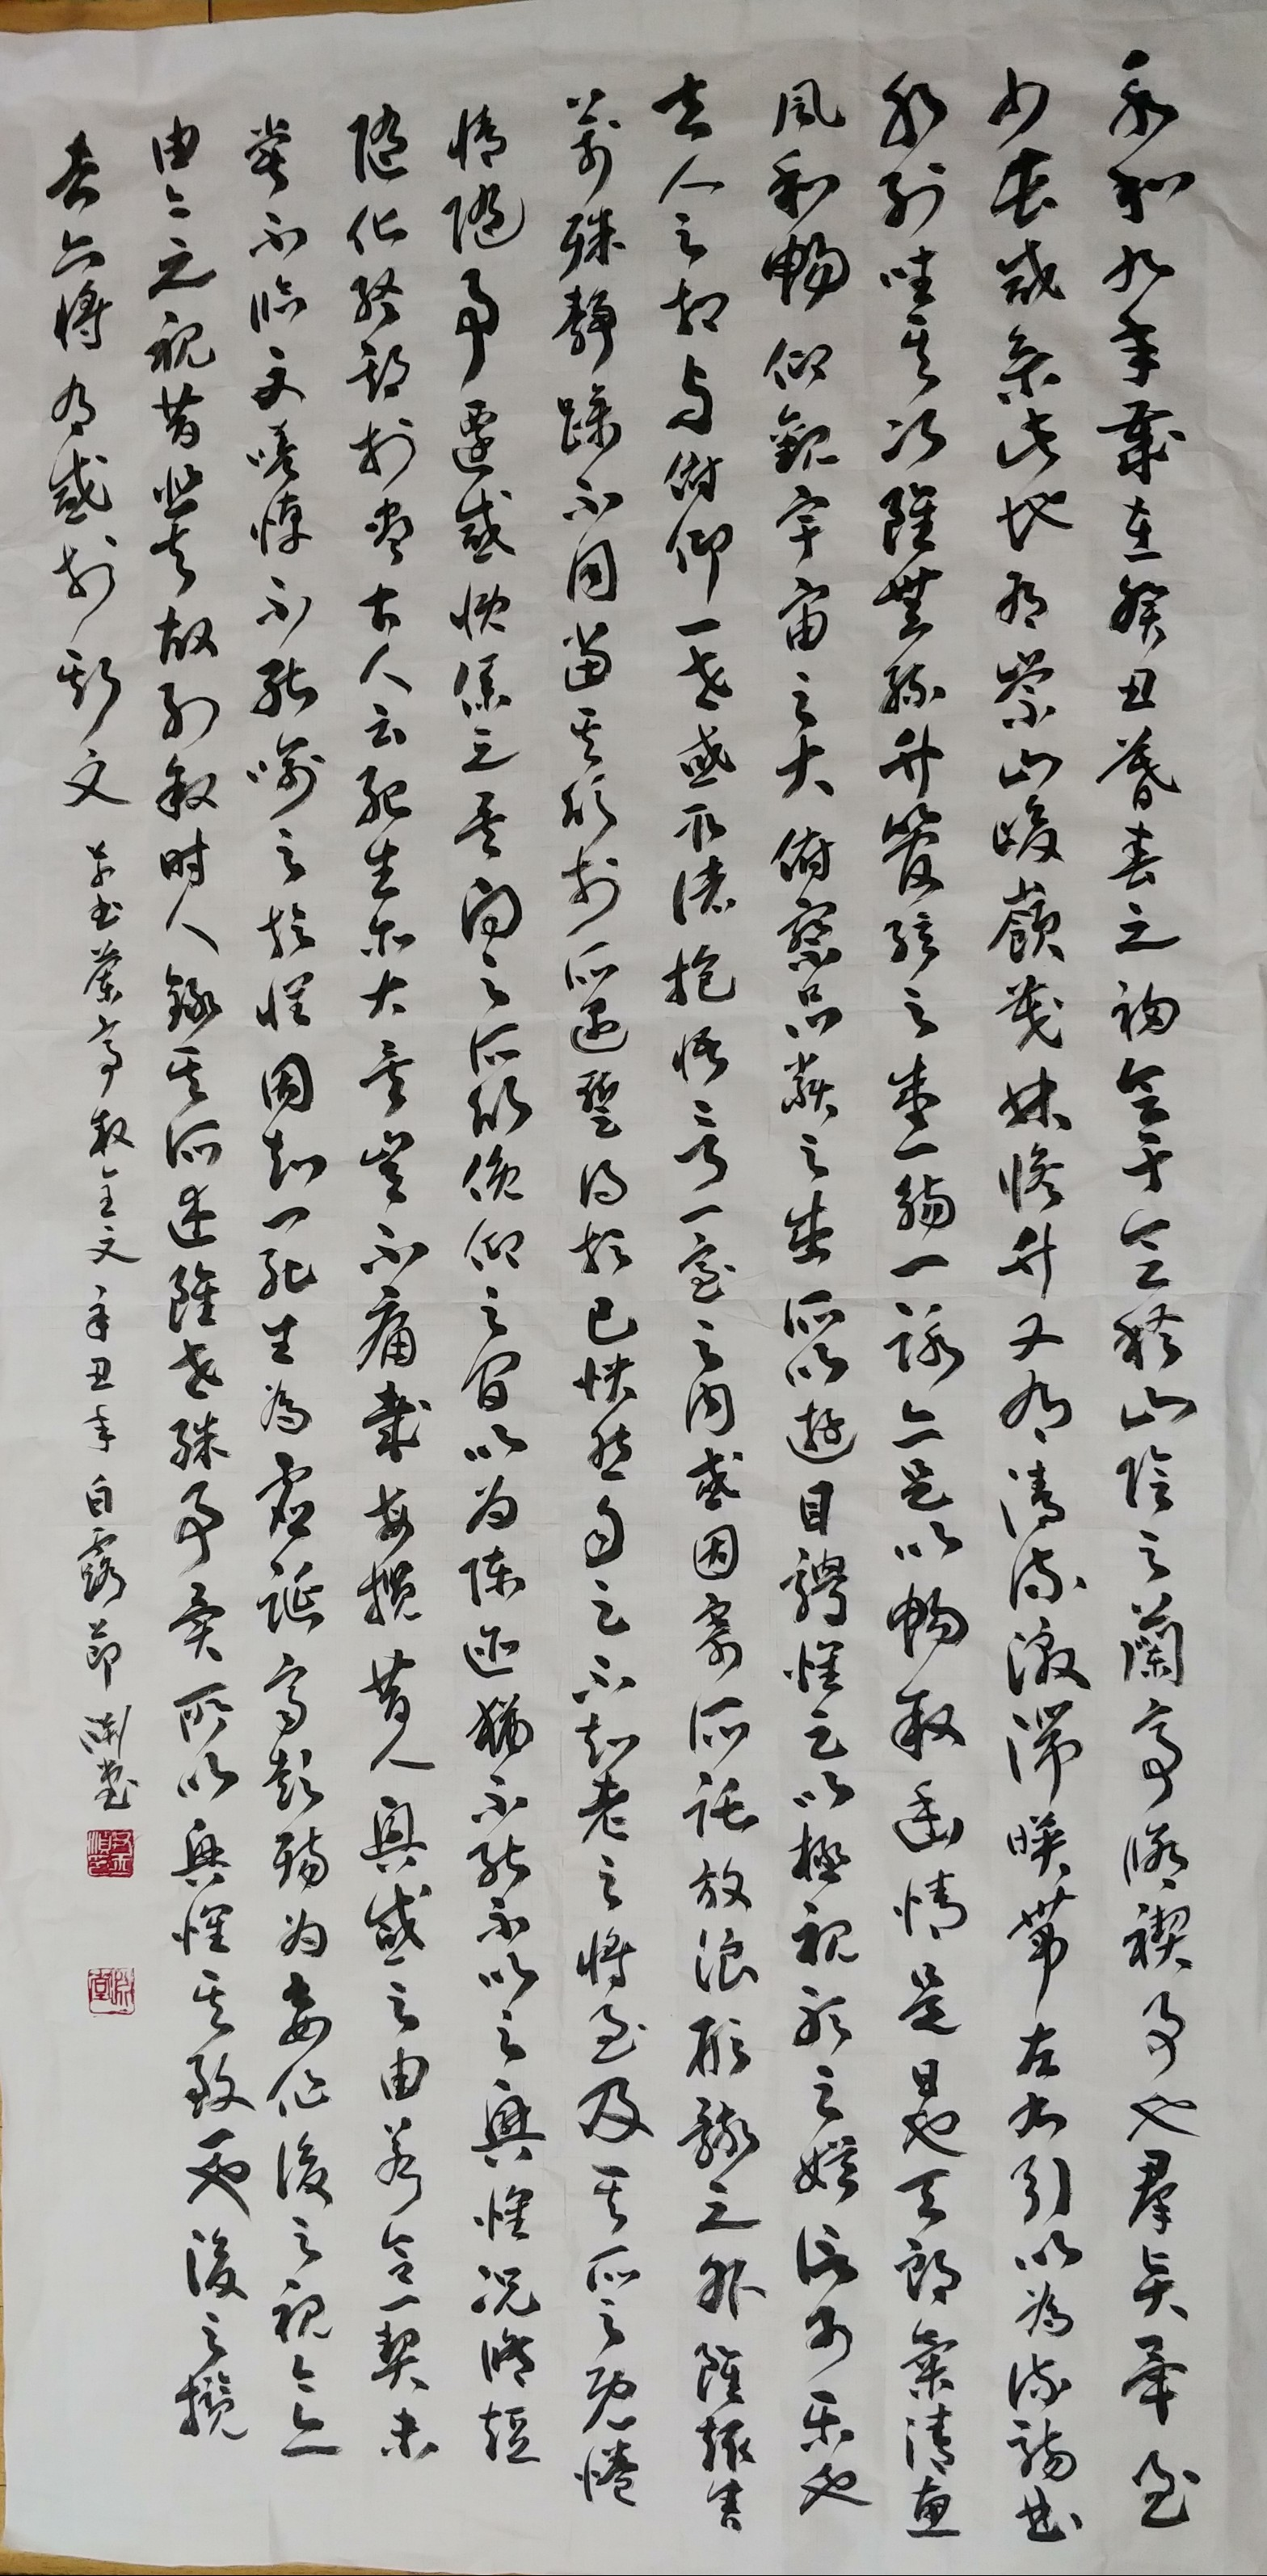 永和九年歲在癸丑暮春之初會于會稽山陰之蘭亭脩禊事也羣賢畢至
少長咸集此地有崇山峻嶺茂林脩竹又有清流激湍暎帶左右引以為流觴曲
水列坐其次雖無絲竹管弦之盛一觴一詠亦足以暢敘幽情是日也天朗氣清惠
風和暢仰觀宇宙之大俯察品類之盛所以遊目騁懷足以極視聽之娛信可樂也
夫人之相與俯仰一世或取諸抱悟言一室之內或因寄所託放浪形骸之外雖趣舍
萬殊靜躁不同當其欣於所遇暫得於己快然自足不知老之將至及其所之既惓
情隨事遷感慨係之矣向之所欣俛仰之間以為陳迹猶不能不以之興懷況脩短
隨化終期於盡古人云死生亦大矣豈不痛哉每攬昔人興感之由若合一契未
嘗不臨文嗟悼不能喻之於懷固知一死生為虛誕齊彭殤為妄作後之視今亦
由今之視昔悲夫故列敘時人錄其所述雖世殊事異所以興懷其致一也後之攬
者亦將有感於斯文 草書蘭亭敘全文 辛丑年白露節